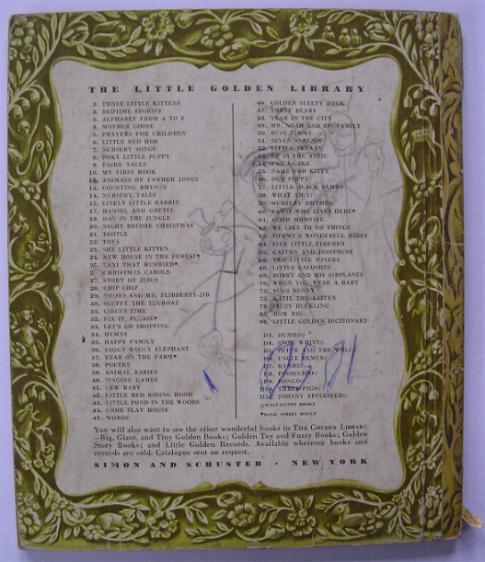 THE LITTLE GOLDEN LIBRARY
1. THREE LITTLE KITTENS
2. BEDTIME STORIES
3. ALPHABET FROM A TO Z
4. MOTHER GOOSE
5. PRAYERS FOR CHILDREN
6. LITTLE RED HEN
7. NURSERY SONGS
8. POKY LITTLE PUPPY
9. FAIRY TALES
10. MY FIRST BOOK
12. ANIMALS OF FARMER JONES
14. COUNTING RHYMES
NURSERY TALES
15. LIVELY LITTLE RABBIT
17. HANSEL AND GRETEL
18. DAY IN THE JUNGLE
20. NIGHT BEFORE CHRISTMAS
21. TOOTLE
22. TOYS
23. SHY LITTLE KITTEN
24. NEW HOUSE IN THE FOREST*
25. TAXI THAT HURRIED*
CHRISTMAS CAROLS
27. STORY OF JESUS
28. CHIP CHIP
29. NOISES AND MR. FLIBBERTY-JIB
30. SCUFFY THE TUGBOAT
31. CIRCUS TIME
32. FIX IT, PLEASE*
33. LET'S GO SHOPPING
34. HYMNS
35. HAPPY FAMILY
36. SAGGY BAGGY ELEPHANT
37. YEAR ON THE FARM*
38. POETRY
39. ANIMAL BABIES
40. SINGING GAMES
41. NEW BABY
42. LITTLE RED RIDING HOOD
43. LITTLE POND IN THE WOODS
44. COME PLAY HOUSE
45. WORDS
46. GOLDEN SLEEPY BOOK
47. THREE BEARS
48. YEAR IN THE CITY
49. MR. NOAH AND HIS FAMILY
50. BUSY TIMMY
51. SEVEN SNEEZES
52. LITTLE PEEWEE
53. UP IN THE ATTIC
54. PAT-A-CAKE
55. NAME FOR KITTY
56. OUR PUPPY
57. LITTLE BLACK SAMBO
58. WHAT AM I?
59. NURSERY RHYMES
60. GUESS WHO LIVES HERE*
61. GOOD MORNING
62. WE LIKE TO DO THINGS
63. TOMMY'S WONDERFUL RIDES
64. FIVE LITTLE FIREMEN
65. GASTON AND JOSEPHINE
66. TWO LITTLE MINERS
LITTLE GALOSHES
69. BOBBY AND HIS AIRPLANES
70. WHEN YOU WERE A BABY
72. BUGS BUNNY
75. KATIE THE KITTEN
FUZZY DUCKLING
HOW BIG
90. LITTLE GOLDEN DICTIONARY
D3. DUMBO
D4. SNOW WHITE
D5. PETER AND THE WOLF
D6. UNCLE REMUS
D7. BAMBI
D8. PINOCCHIO
BONGO
THREE PIGS
JOHNNY APPLESEED
WALT DISNEY BOOKS
*BANK STREET BOOKS
You will also want to see the other wonderful books in THE GOLDEN LIBRARY
—Big, Giant, and Tiny Golden Books; Golden Toy and Fuzzy Books; Golden
Story Books; and Little Golden Records. Available wherever books and
records are sold. Catalogue sent on request.
SIMON AND SCHUSTER · NEW YORK